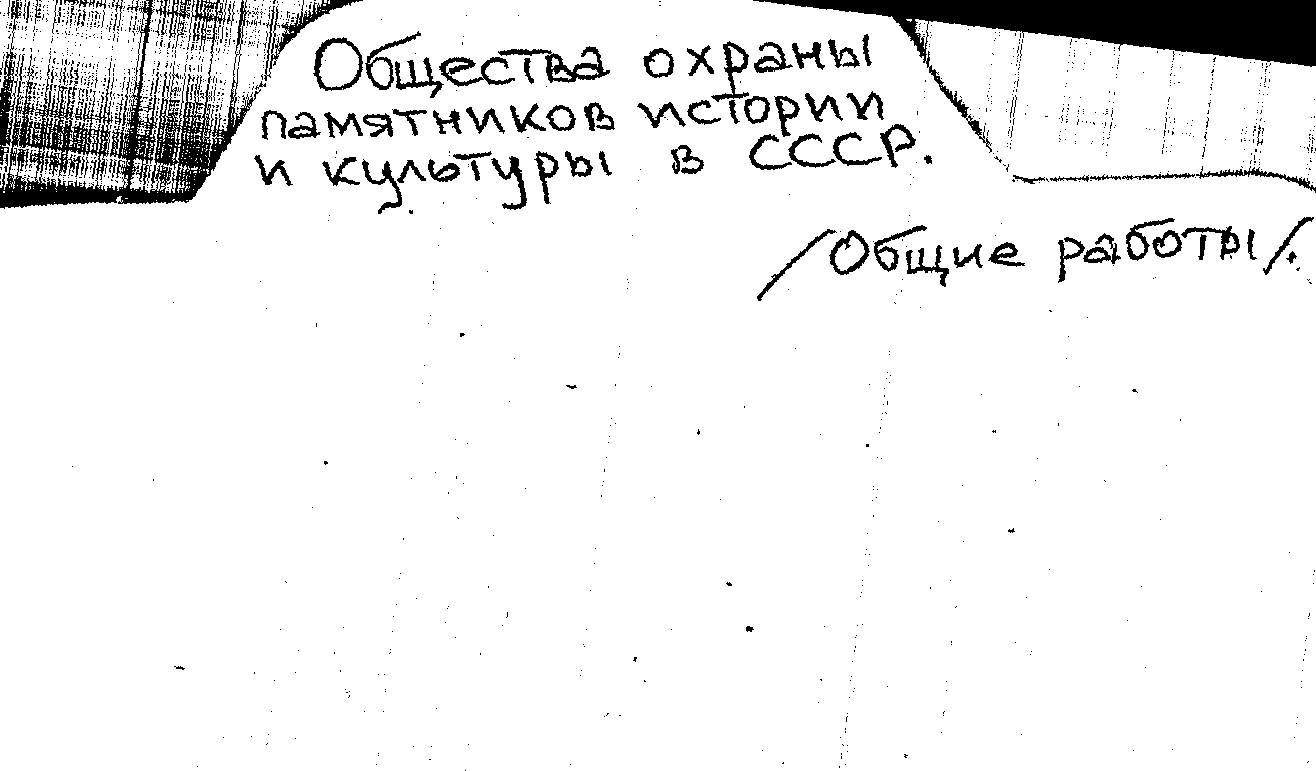 Общества охраны
памятников истории
и культуры в СССР.
/Общие работы/.